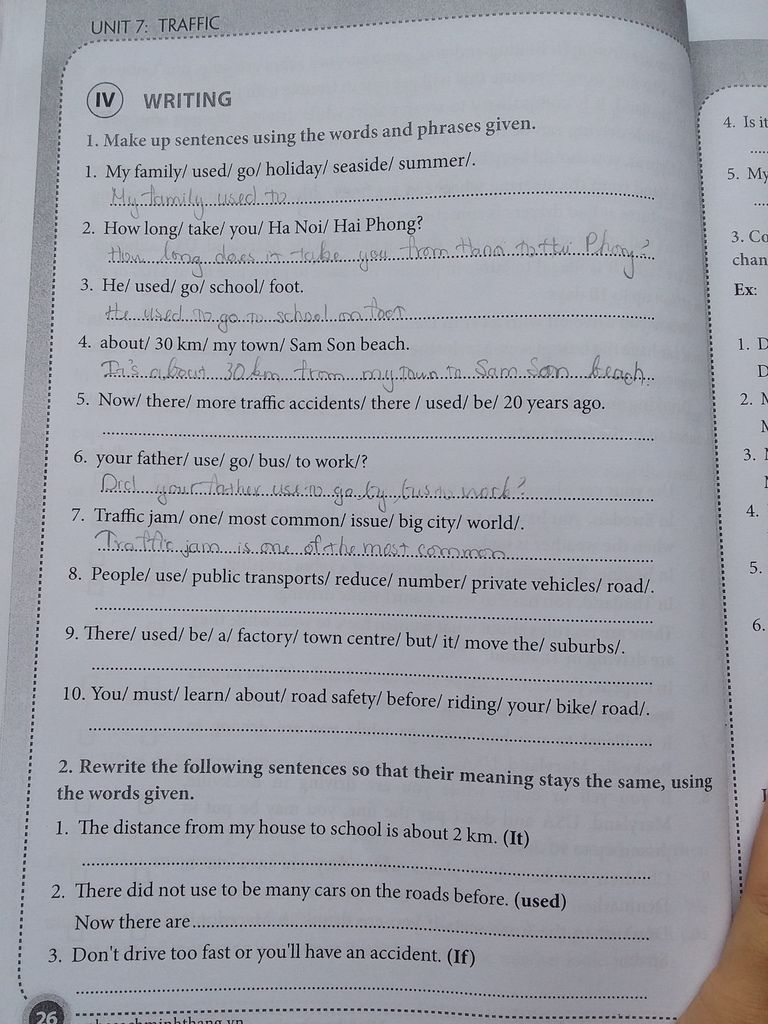 UNIT 7: TRAFFIC
IV WRITING
1. Make up sentences using the words and phrases given.
1. My family/ used/ go/ holiday/ seaside/ summer/.
My family used to
2. How long/ take/ you/ Ha Noi/ Hai Phong?
How long does it take you from Hanoi to Hai Phong?
3. He/ used/ go/ school/ foot.
He used to go to school on foot
4. about/ 30 km/ my town/ Sam Son beach.
It's about 30 km from my town to Sam Son beach.
5. Now/ there/ more traffic accidents/ there / used/ be/ 20 years ago.
6. your father/ use/ go/ bus/ to work/?
Did your father use to go by bus to work?
7. Traffic jam/ one/ most common/ issue/ big city/ world/.
Traffic jam is one of the most common
8. People/ use/ public transports/ reduce/ number/ private vehicles/ road/.
9. There/ used/ be/ a/ factory/ town centre/ but/ it/ move the/ suburbs/.
10. You/ must/ learn/ about/ road safety/ before/ riding/ your/ bike/ road/.
2. Rewrite the following sentences so that their meaning stays the same, using
the words given.
1. The distance from my house to school is about 2 km. (It)
2. There did not use to be many cars on the roads before. (used)
Now there are
3. Don't drive too fast or you'll have an accident. (If)
26
4. Is it
5. My
3. Co
chan
Ex:
1. D
D
2. M
M
3.
4.
5.
6.